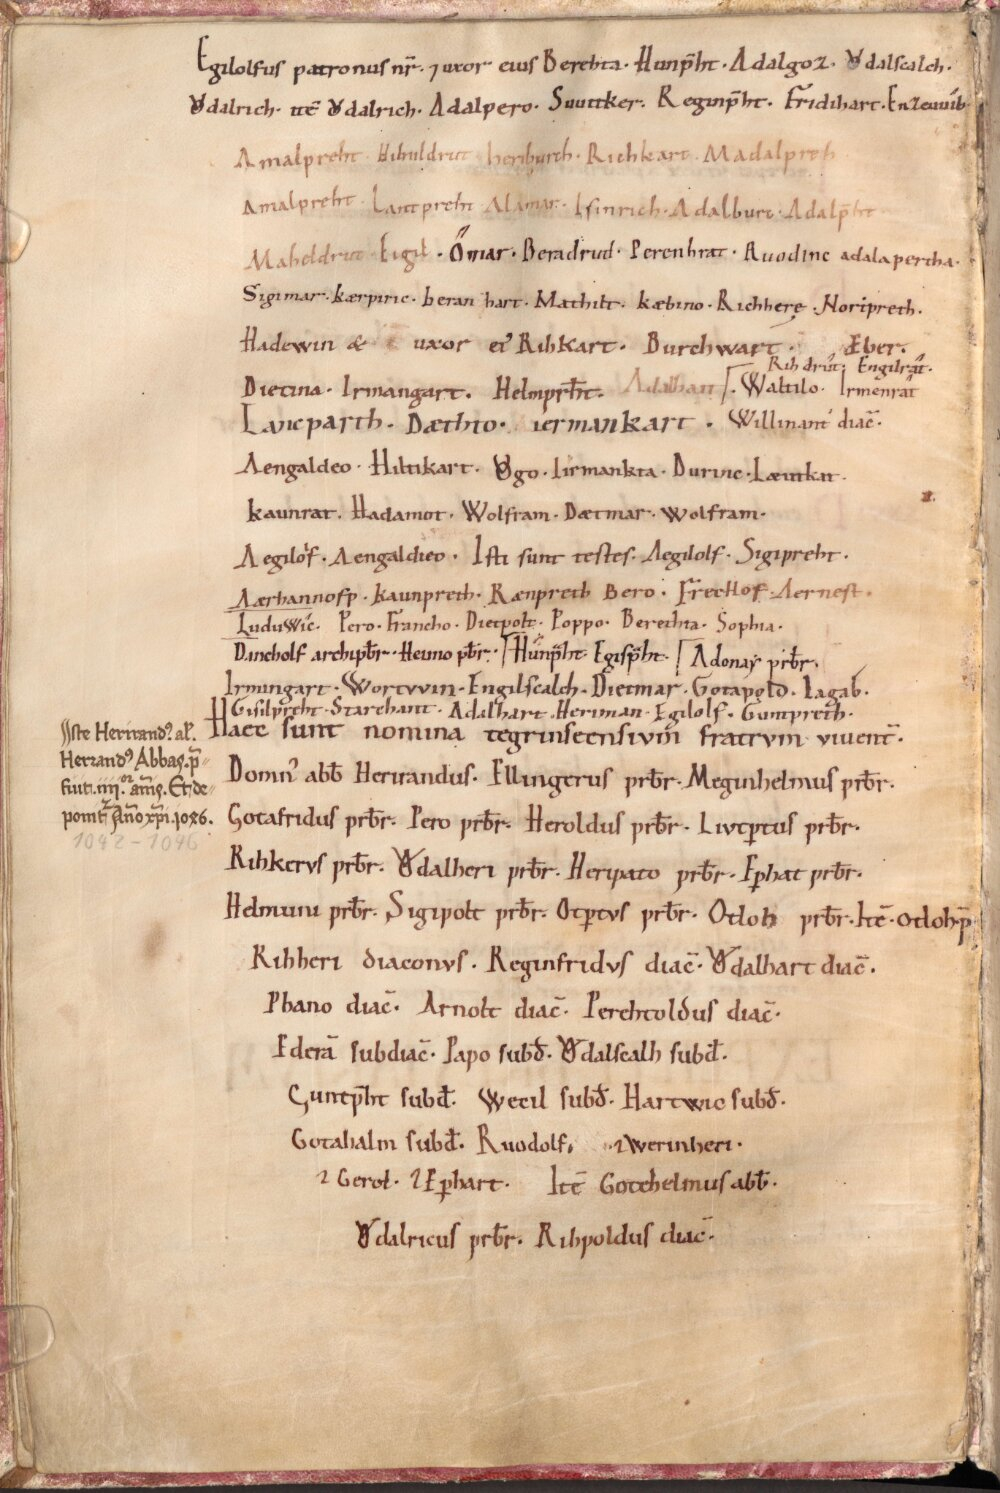 Egilolfus patronus nr̄. ⁊ uxor eius Berehta. Hunp̄ht. Adalgoz. Vͦdalscalch.
Vͦdalrich. itē Vͦdalrich. Adalpero. Suuitker. Reginp̄ht. Fridihart. Enzeuuib
Amalpreht. Hihuldrut heriburch. Richkart. Madalpreh
Amalpreht. Lantpreht Alamar. Isinrich. Adalburc. Adalp̄ht.
Maheldrut. Eigil. Ömar. Beradrud. Perenhrat. Ruodinc adalapertha.
Sigimar. kærpiric. beran hart. Mathilt. kæbino. Richhere. Noripreth.
Hadewin & uxor ei᾽ Rihkart. Burchwart. Eber.
Rihdrut. Engilrat.
Dietina. Irmangart. Helmprht. Adalhart. Waltilo. Irmenrat
Lancparth. Dæthio. iermankart. Willinant diac̄.
Aengaldeo. Hiltikart. Vͦgo. Iirmankta. Durinc.
kaunrat. Hadamot. Wolfram. Dætmar. wolfram.
Aegilolf. Aengaldieo. Isti sunt testes. Aegilolf. Sigipreht.
kaunpreth. Rænpreth Bero. Aernest.
Luduwic. Pero. Francho. Dietpolt. Poppo. Berehta. Sophia.
Dancholf archipb̄r. Heimo pb̄r. Hunp̄ht. Egisp̄ht. Adonay prb̄r.
Irmingart. Wortvvin. Engilscalch. Dietmar. Gotapold. Iagab.
Gisilpreht. Starchant. Adalhart. Heriman. Egilolf. Guntpreth.
Haec sunt nomina tegrinseensium fratrvm vivent̄.
Iste Herirandꝰ al̄.
Herrandꝰ Abbas. p̄
fuit. iiii.or am̄s. Et de-
ponit᷑ Año xp̄i. 1046.
1042-1046
Domnꝰ abb̄ Herirandus. Ellingerus prb̄r. Meginhelmus prb̄r.
Gotafridus prb̄r. Pero prb̄r. Heroldus prb̄r. Livtꝑtus prb̄r.
Rihkervs prb̄r. Vͦdalheri prb̄r. Heripato prb̄r. Eꝑhat prb̄r.
Helmuni prb̄r. Sigipolt prb̄r. Otꝑtvs prb̄r. Otloh prb̄r. Itē. otloh. p̄
Rihheri diaconvs. Reginfridvs diac̄. Vͦdalhart diac̄.
Phano diac̄. Arnolt diac̄. Perehtoldus diac̄.
Ederā subdiac̄. Papo subd̄. Vͦdalscalh subd̄.
Guntp̄ht subd̄. Wecil subd̄. Hartwic subd̄.
Gotahalm subd̄. Ruodolf. ⁊ Werinheri.
⁊ Gerol. ⁊ Eꝑhart. Itē Gotehelmus abb̄.
Vͦdalricus prb̄r. Rihpoldus diac̄.